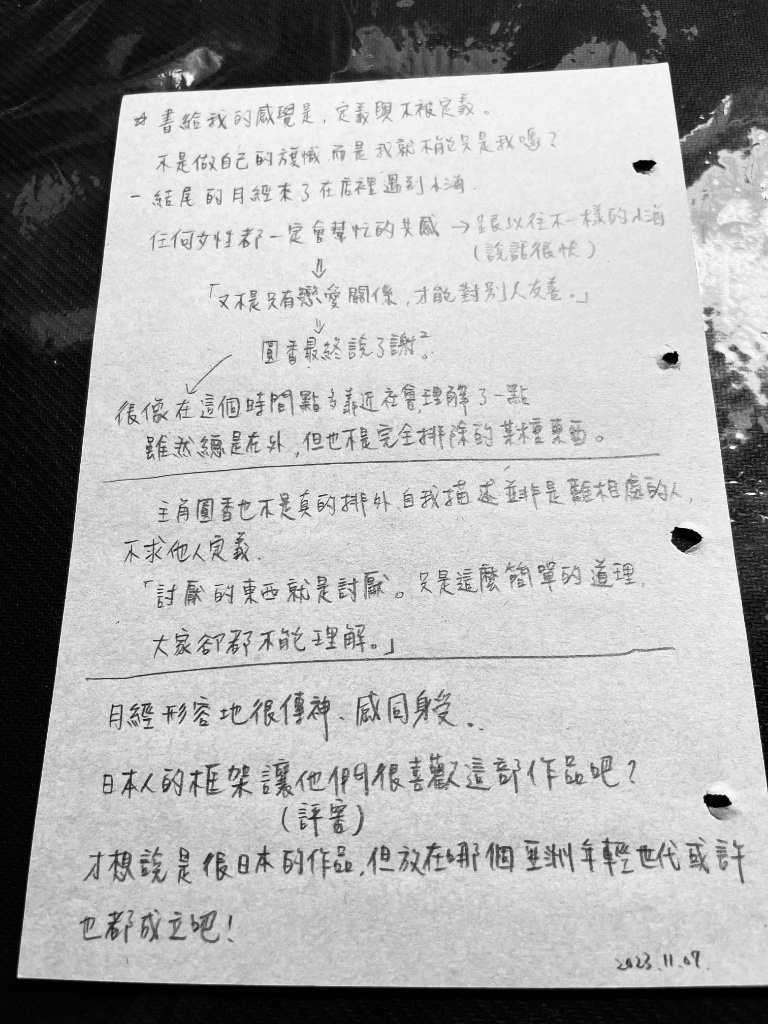 ☆ 書給我的感覺是，定義與不被定義。
不是做自己的旗幟 而是我就不能只是我嗎？
－結尾的月經來了在店裡遇到小海.
任何女性都一定會幫忙的共感 → 跟以往不一樣的小海
（說話很快）
⇓
「又不是只有戀愛關係，才能對別人友善。」
⇓
圓香最終說了謝²。
很像在這個時間點多靠近社會，理解了一點
雖然總是在外，但也不是完全排除的某種東西。
主角圓香也不是真的排外，自我描述並非是難相處的人，
不求他人定義.
「討厭的東西就是討厭。只是這麼簡單的道理，
大家卻都不能理解。」
月經形容地很傳神、感同身受.
日本人的框架讓他們很喜歡這部作品吧？
（評審）
才想說是很日本的作品，但放在哪個亞洲年輕世代或許
也都成立吧！
2023.11.07.